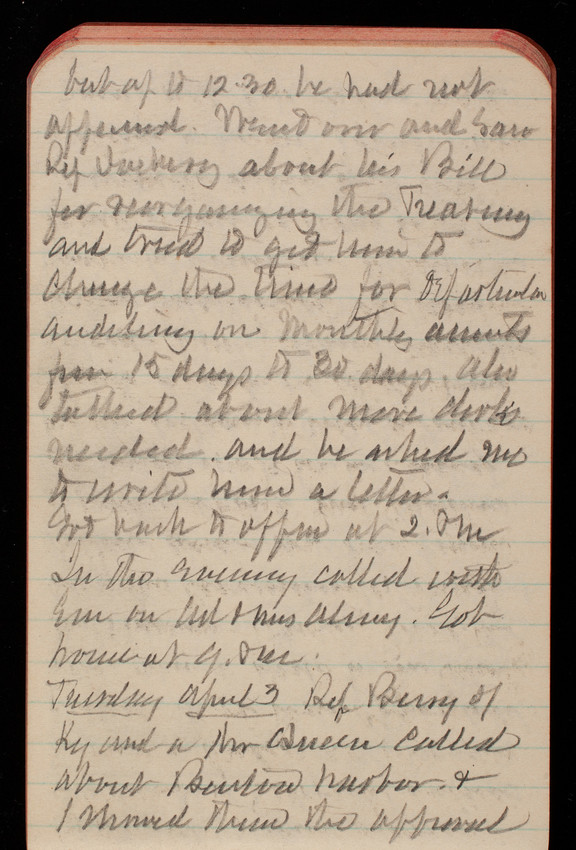 but up to 12.30 he had not
appeared. Went over and saw
Rep Dockery about his Bill
for reorganizing the Treasury
and tried to get him to
change the time for
auditing on Monthly accounts
from 15 days to 30 days, also
talked about more clerks
needed. and he asked me
to write him a letter.
Got back to office at 2. Pm
In the evening called with
Em on Col & Mrs Abney. Got
home at 9. Pm.
Tuesday April 3 Rep Berry of
Ky and a Mr Queen called
about Benton harbor. &
I showed them the approval